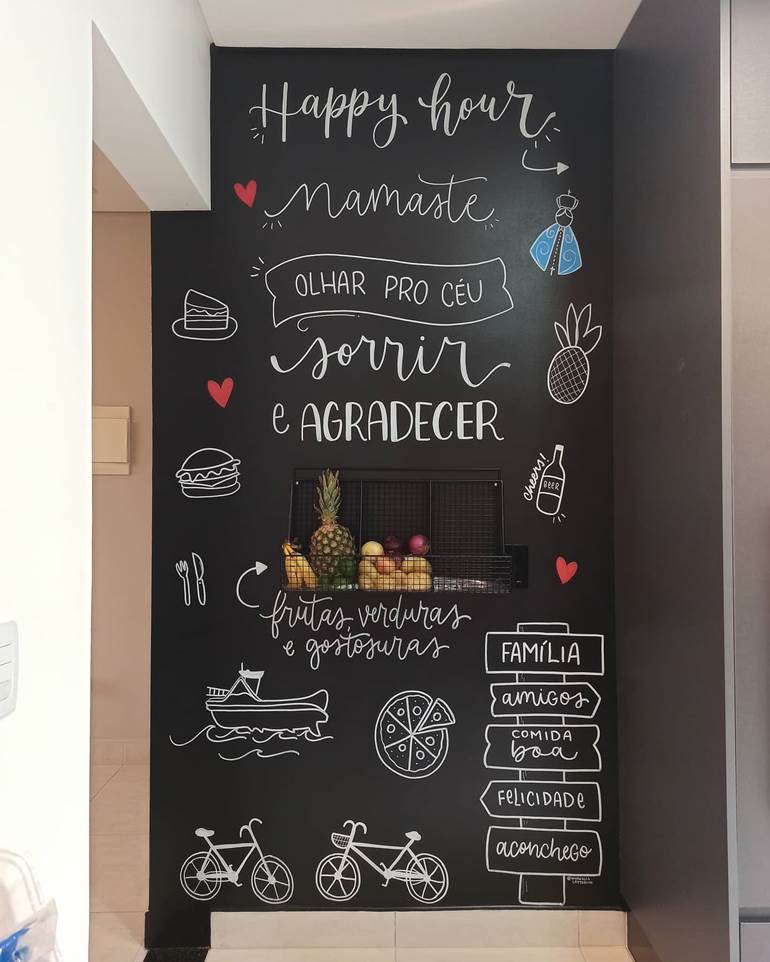 Happy hour
Namaste
OLHAR PRO CÉU
sorrir
e AGRADECER
cheers!
BEER
frutas, verduras
e gostosuras
FAMÍLIA
amigos
COMIDA
boa
FELICIDADE
aconchego